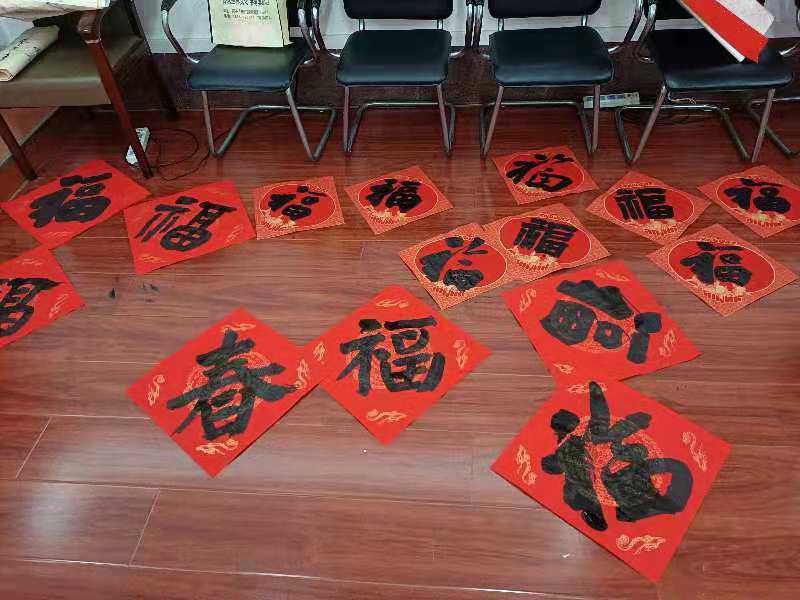 福
福
福
福
福
福
福
福
福
福
福
春
福
福
福